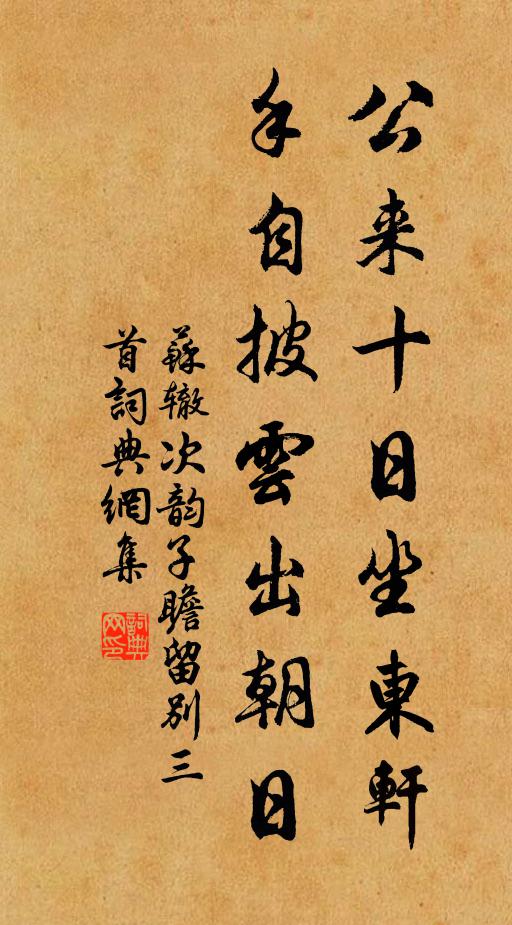 公来十日坐東軒
手自披雲出朝日
蘇辙次韵子瞻留别三
首詞典網集
詞典网印